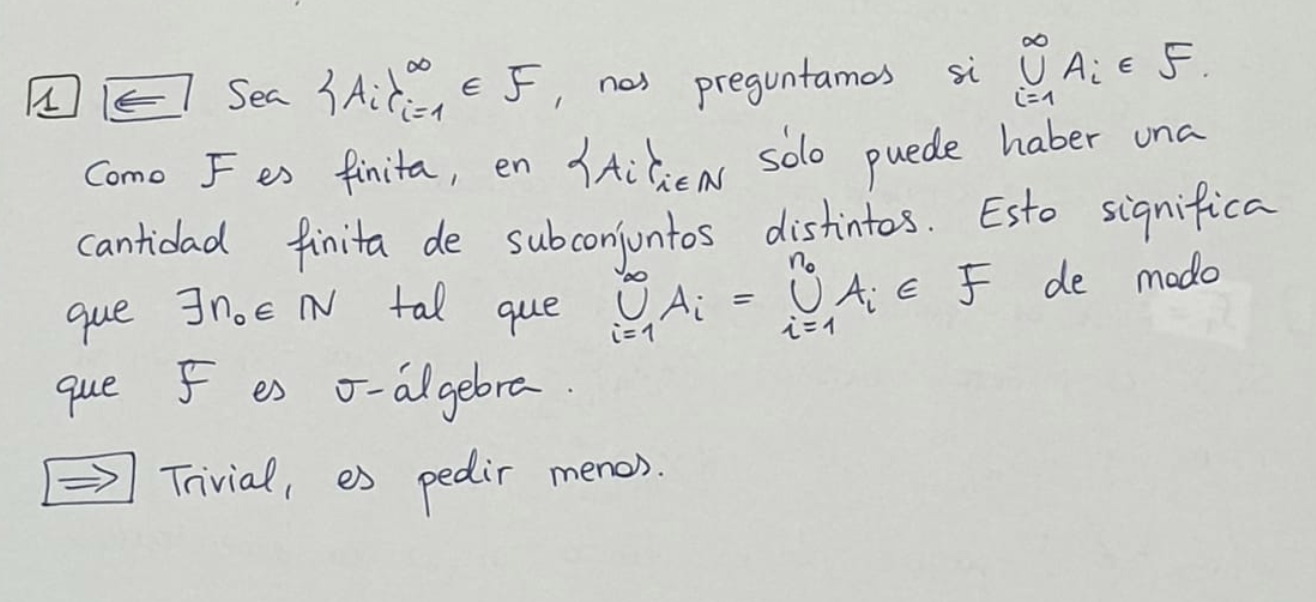 1 ⇐ Sea {Ai}_{i=1}^∞ ∈ F, nos preguntamos si ⋃_{i=1}^∞ Ai ∈ F.
Como F es finita, en {Ai}_{i∈ℕ} sólo puede haber una
cantidad finita de subconjuntos distintos. Esto significa
que ∃n₀ ∈ ℕ tal que ⋃_{i=1}^∞ Ai = ⋃_{i=1}^{n₀} Ai ∈ F de modo
que F es σ-álgebra.
⇒ Trivial, es pedir menos.